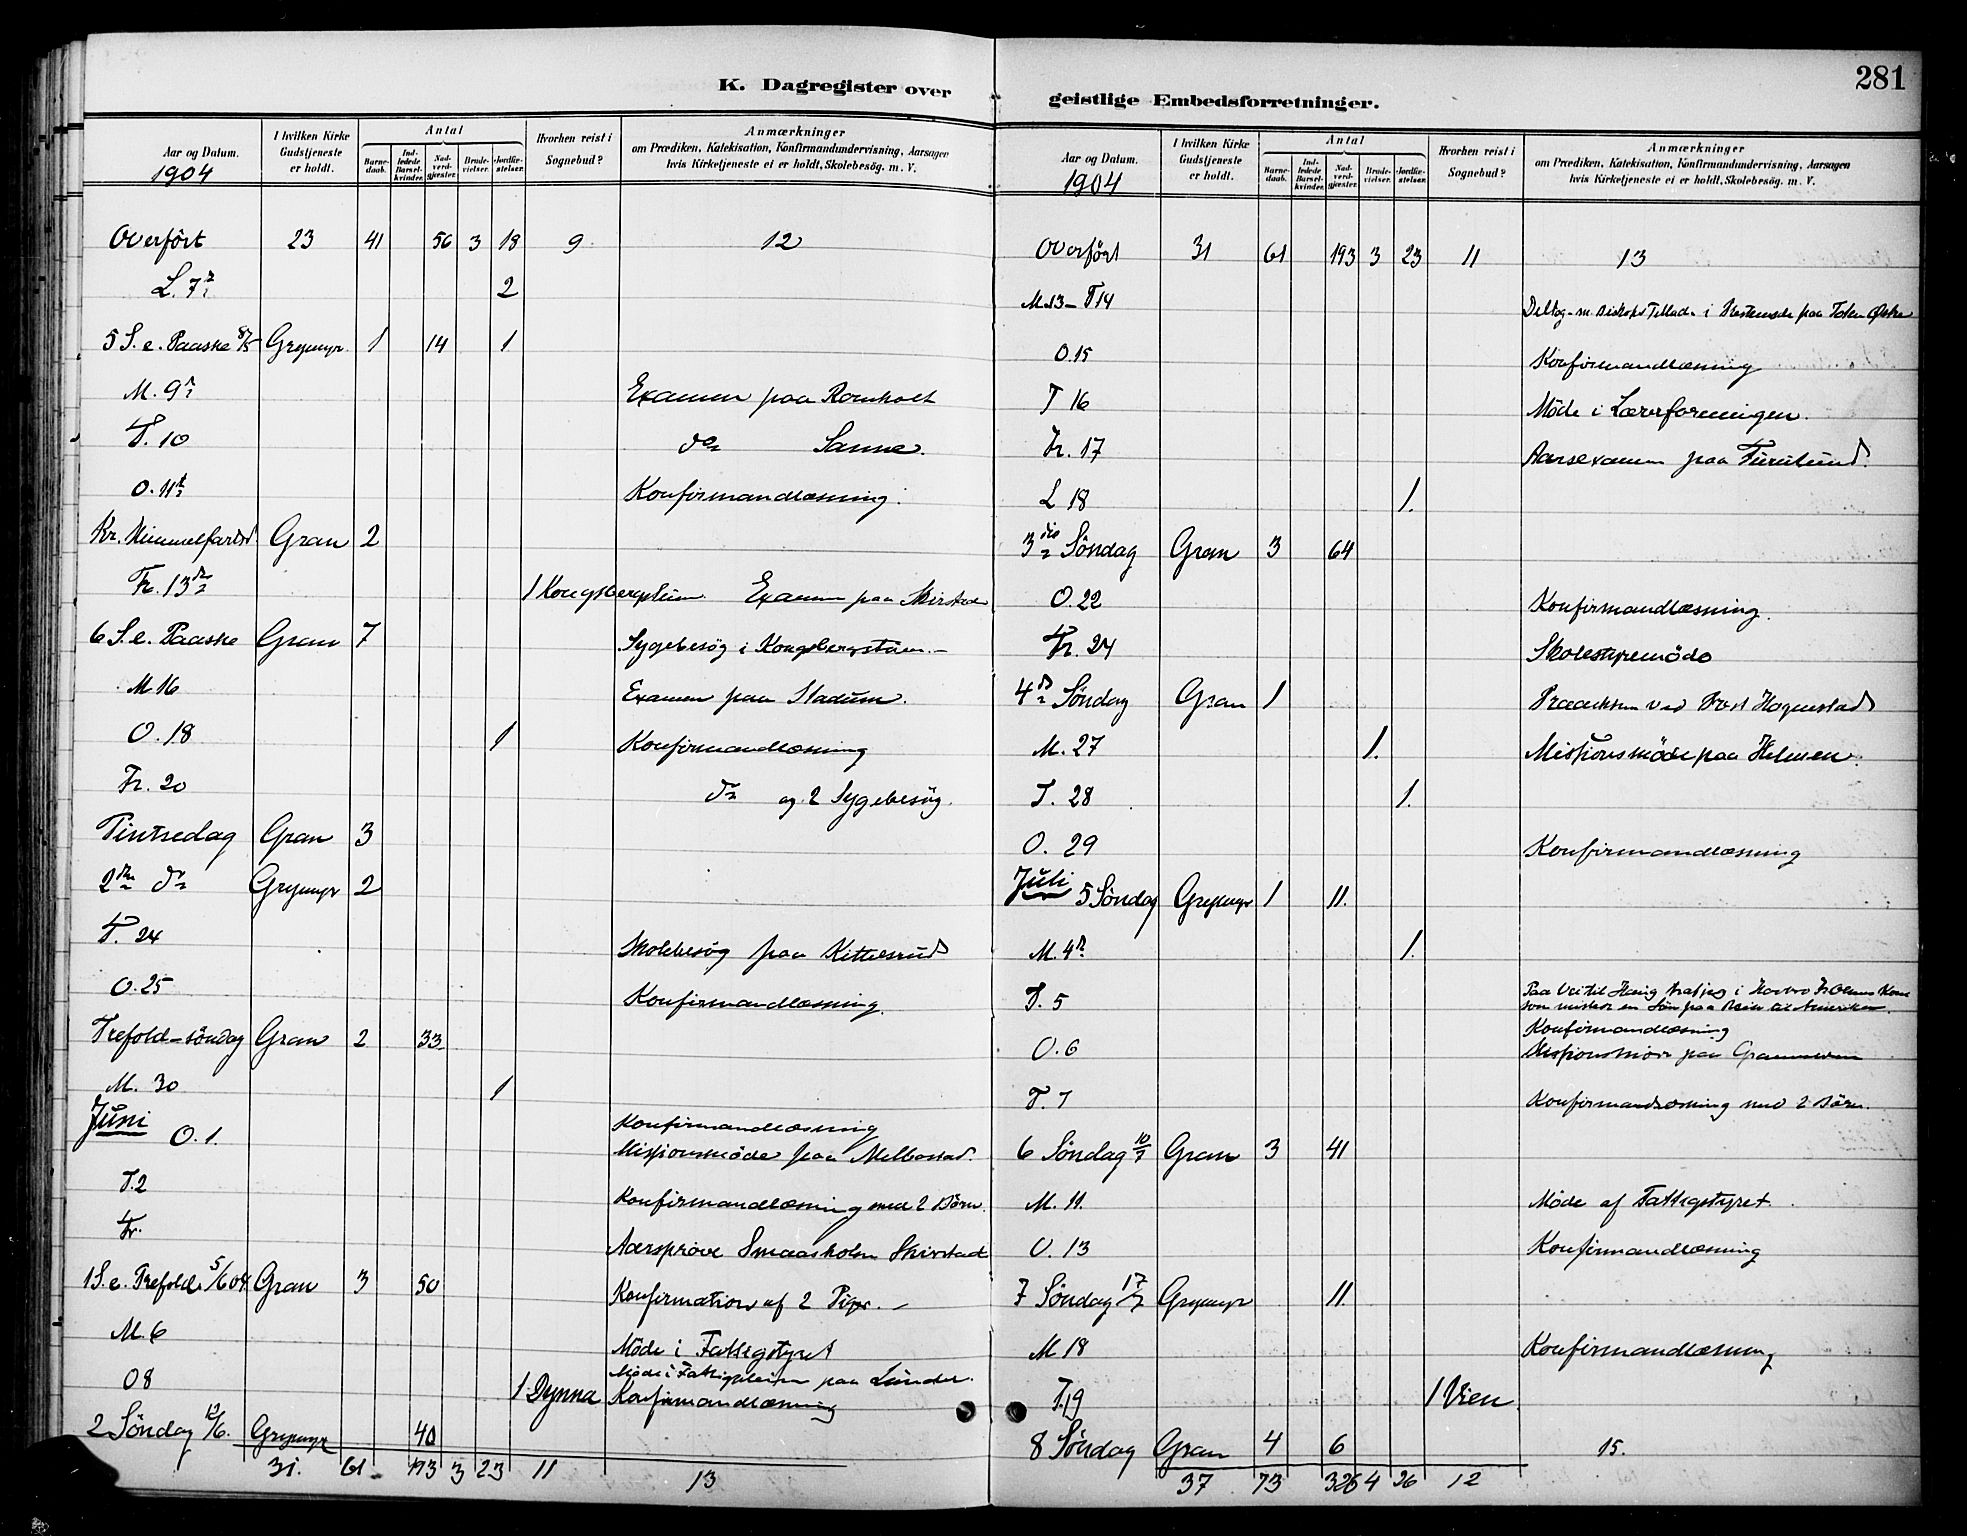 K. Dagregister over
Aar og Datum.
1904
I hvilken Kirke Gudstjeneste er holdt.
Antal
Barne-daab.
Ind-ledede Barsel-kvinder.
Nad-verd-gjæster.
Brude-vielser.
Jordfæ-stelser.
Hvorhen reist i Sognebud?
Anmærkninger
om Prædiken, Katekisation, Konfirmandundervisning, Aarsagen
hvis Kirketjeneste ei er holdt, Skolebesøg. m. V.
Overført 23 41 56 3 18 9 12
L. 7de 2
5 S. e. Paaske 8/5 Grymyr 1 14 1
M. 9de Examen paa
T. 10 do Sanne.
O. 11te Konfirmandlæsning.
Kr. Himmelfartsd. Gran 2
Fr. 13de 1 Examen paa Skirstad
6 S. e. Paaske Gran 7 Sygebesøg i
M 16 Examen paa Stadum.
O. 18 1 Konfirmandlæsning
Fr. 20 do og 2 Sygebesøg.
Pintsedag Gran 3
2den do Grymyr 2
T. 24 Skolebesøg paa Kittelsrud
O. 25 Konfirmandlæsning.
Trefold-søndag Gran 2 33
M. 30 1
Juni O. 1. Konfirmandlæsning
Missionsmøde paa Melbostad.
T. 2 Konfirmandlæsning med 2 Børn.
Fr. Aarsprøve Smaaskolen Skirstad
1 S. e. Trefold. 5/6 04. Gran 3 50 Konfirmation af 2 Piger.
M. 6 Møde i Fattigstyret
O 8 1 Dynna Møde i paa Lunder.
Konfirmandlæsning
2 Søndag 12/6. Grymyr 40
31. 61 193 3 23 11 13
281
geistlige Embedsforretninger.
Aar og Datum.
1904
I hvilken Kirke Gudstjeneste er holdt.
Antal
Barne-daab.
Ind-ledede Barsel-kvinder.
Nad-verd-gjæster.
Brude-vielser.
Jordfæ-stelser.
Hvorhen reist i Sognebud?
Anmærkninger
om Prædiken, Katekisation, Konfirmandundervisning, Aarsagen
hvis Kirketjeneste ei er holdt, Skolebesøg. m. V.
Overført 31 61 193 3 23 11 13
M. 13 – T 14 paa Toten
O. 15 Konfirmandlæsning
T 16 Møde i Lærerforeningen.
Fr. 17 Aarsexamen paa Furulund.
L 18 1.
3die Søndag Gran 3 64
O. 22 Konfirmandlæsning.
Fr. 24 Skolestyremøde
4de Søndag Gran 1 ved Hagenstad
M. 27 1. Missionsmøde paa Helmen.
T. 28 1.
O. 29 Konfirmandlæsning
Juli 5 Søndag Grymyr 1 11.
M. 4de 1.
T. 5 Paa
som mistede en Søn paa Reise til Amerika.
O. 6 Konfirmandlæsning
paa
T. 7 Konfirmandlæsning med 2 Børn.
6 Søndag 10/7 Gran 3 41
M. 11. Møde af Fattigstyret.
O. 13 Konfirmandlæsning
7 Søndag 17/7 Grymyr 11.
M 18 Konfirmandlæsning
T. 19 1 Vien.
8 Søndag Gran 4 6 15.
37 73 326 4 26 12